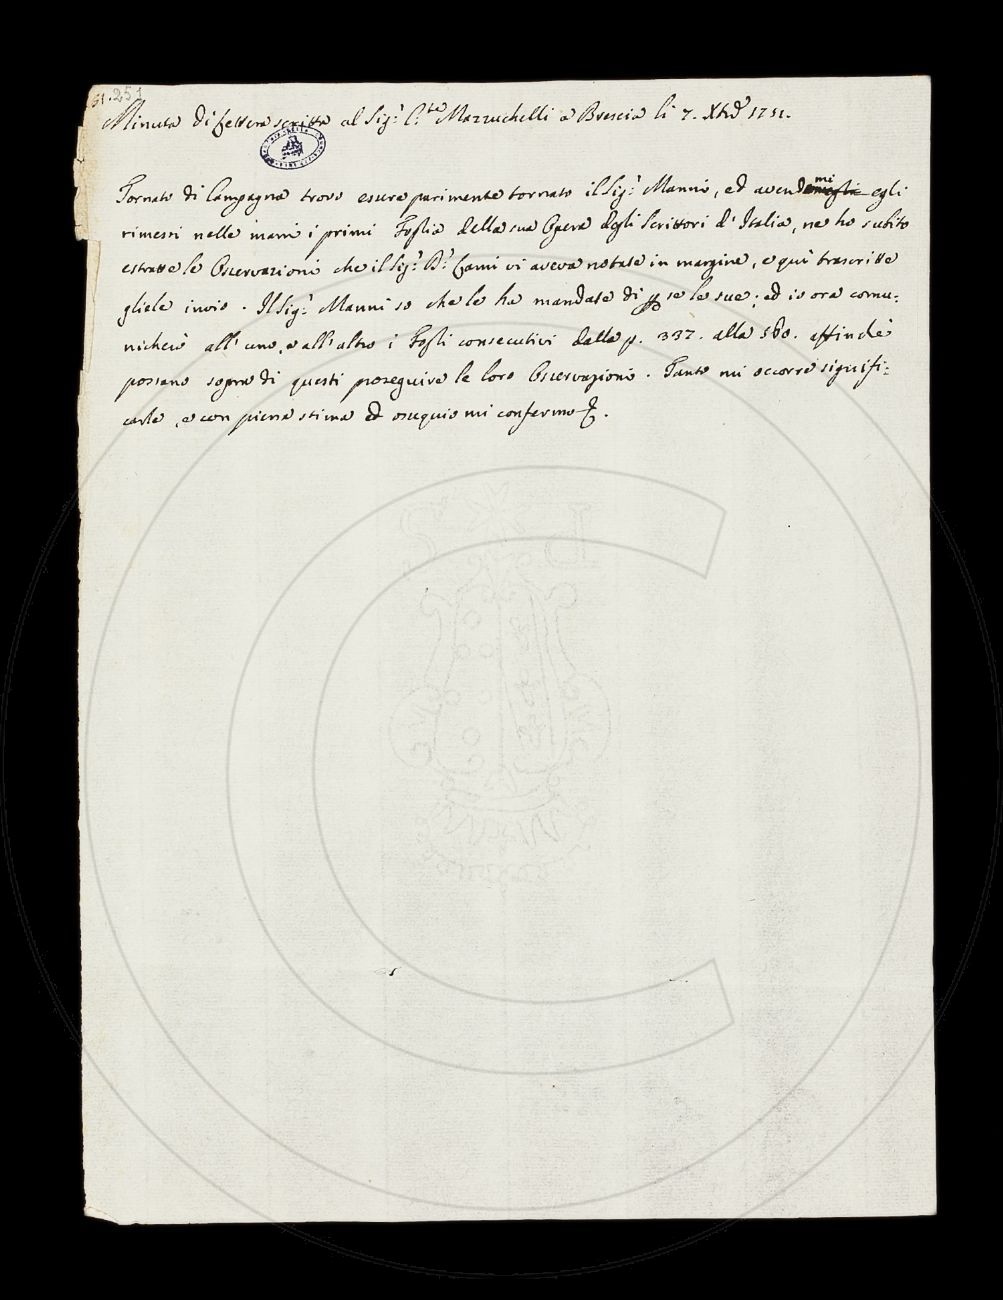 251
Minuta di Lettera scritta al Sig.r C.te Mazzuchelli a Brescia li 7. Xbre 1751.
Tornato di Campagna trovo essere parimente tornato il Sig.r Manni, ed avendomi egli
rimessi nelle mani i primi Foglia della sua Opera degli Scrittori d'Italia, ne ho subito
estratte le Osservazioni che il Sig.r D.r Lami vi aveva notate in margine, e quì trascritte
gliele invio. Il Sig.r Manni so che le ha mandate di per se le sue; ed io ora comu:
nicherò all'uno, e all'altro i Fogli consecutivi dalla p. 337. alla 560. affinchè
possano sopra di questi proseguire le loro Osservazioni. Tanto mi occorre signifi:
carle, e con piena stima ed ossequio mi confermo